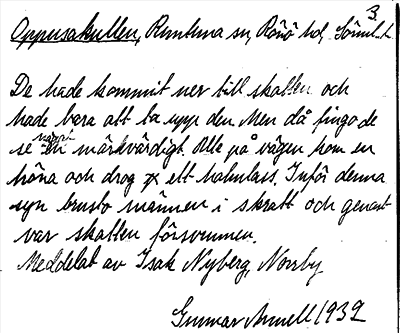 3.
Oppusakullen, Runtuna sn, Rönö hd, Sörml.
De hade kommit ner till skatten och
hade bara att ta upp den. Men då fingo de
se något märkvärdigt. Alla på vägen kom en
höna och drog på ett halmlass. Inför denna
syn brusto männen i skratt och genast
var skatten försvunnen.
Meddelat av Isak Nyberg, Norrby
Gunnar 1932